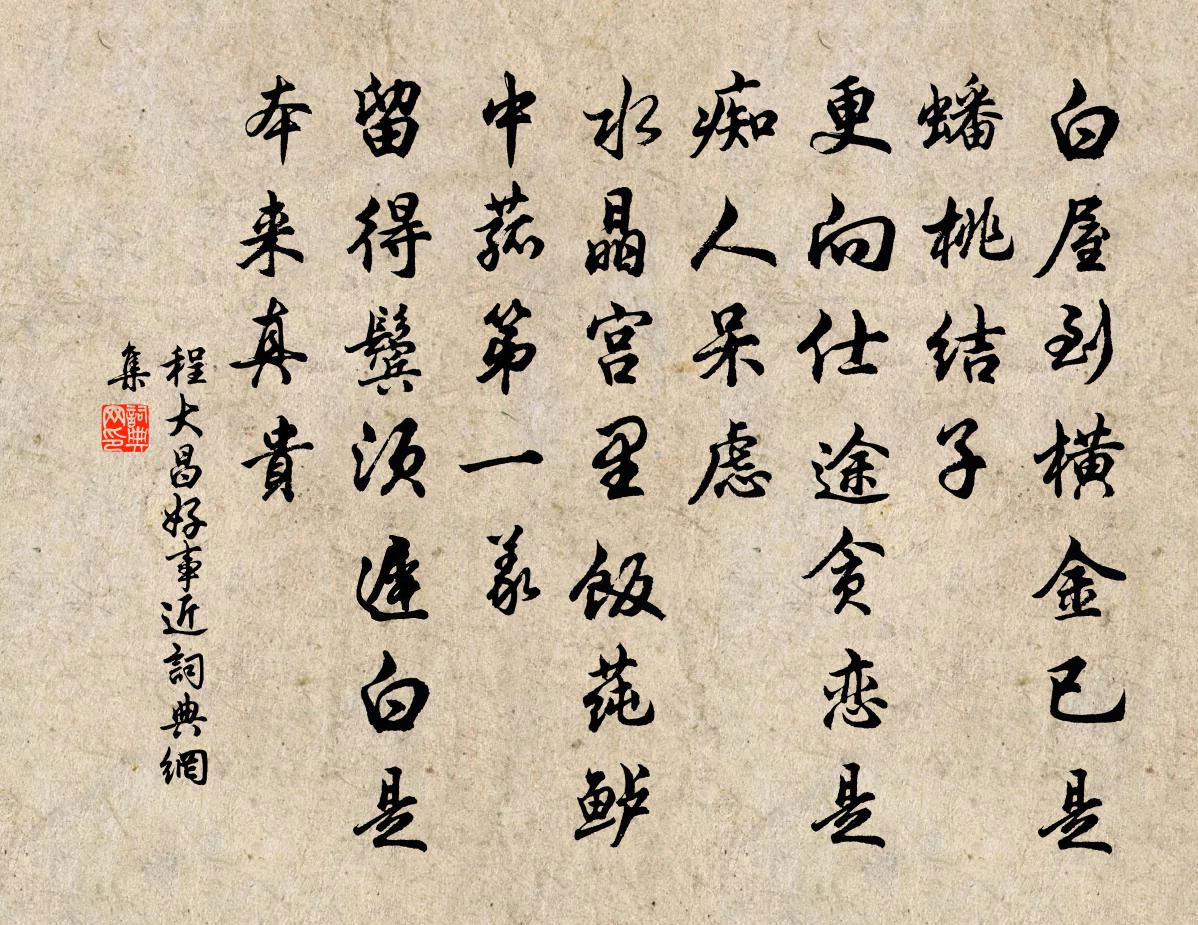 白屋到横金已是
蟠桃结子
更向仕途贪恋是
痴人呆虑
水晶宫里饭莼鲈
中孤第一义
留得鬓须迟白是
本来真貴
程大昌好事近詞典網
集
詞典
网印